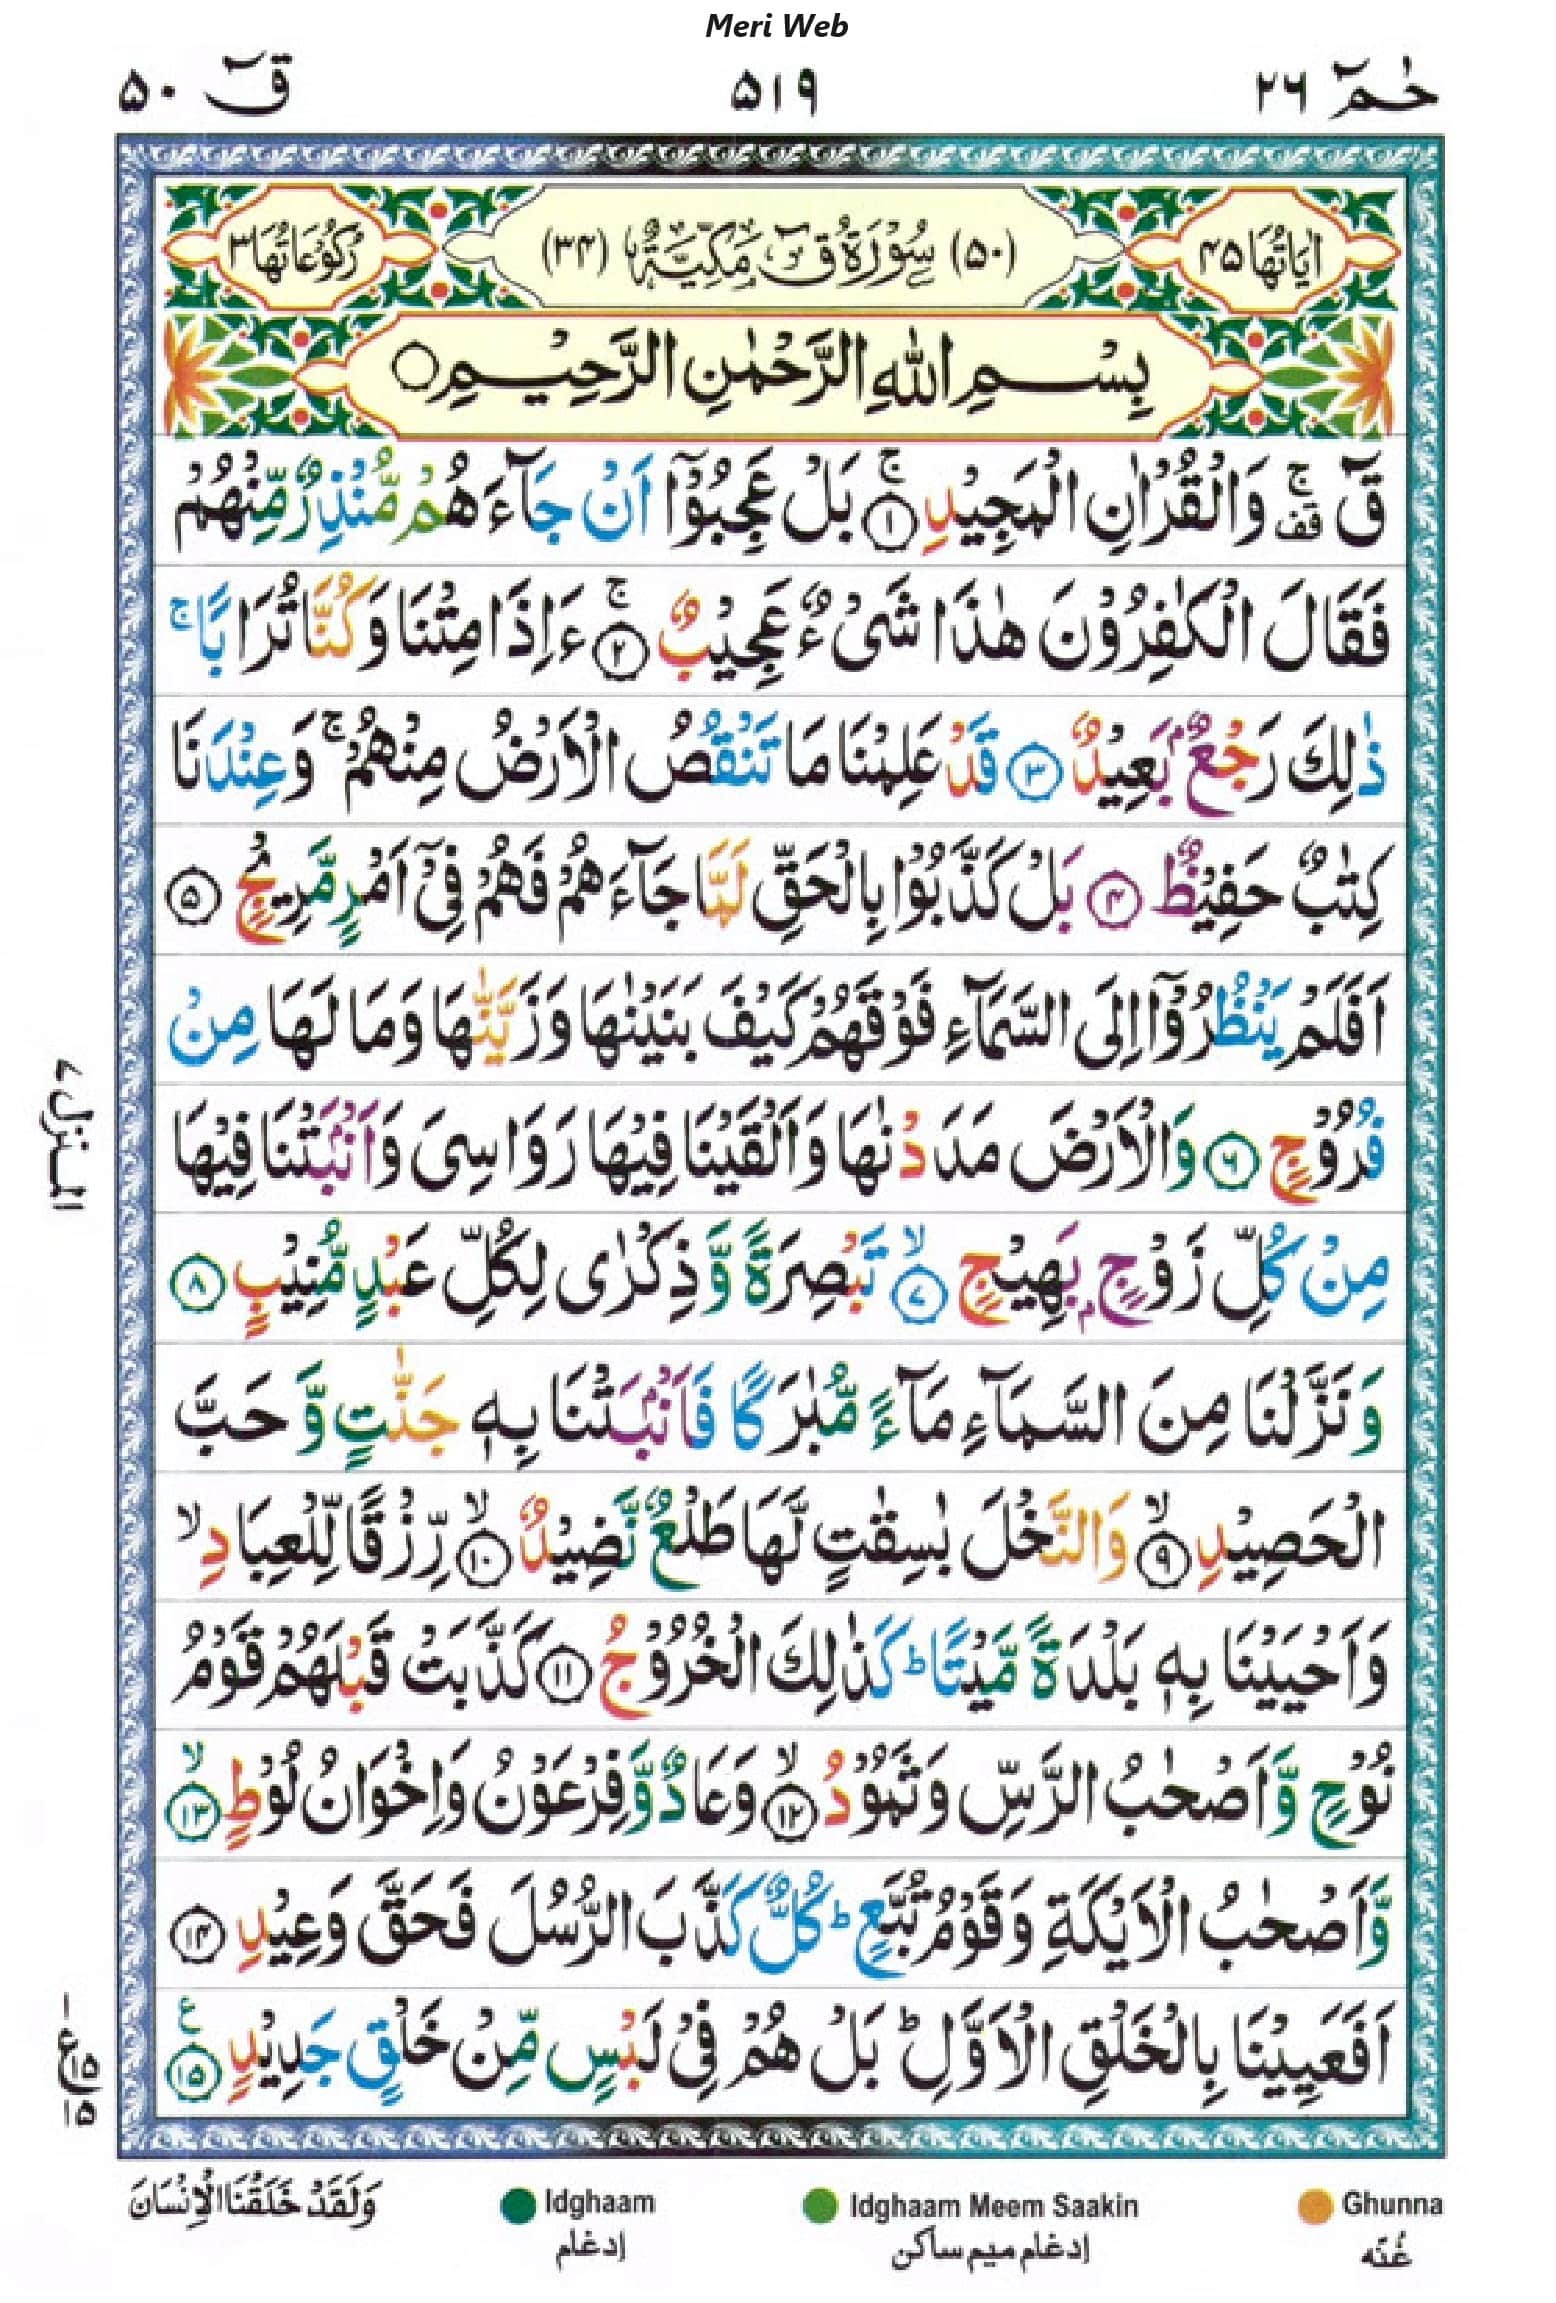 Meri Web
حٰمٓ ٢٦ ٥١٩ قٓ ٥٠
اٰيَاتُهَا ٤٥ (٥٠) سُوْرَةُ قٓ مَكِّيَّةٌ (٣٤) رُكُوْعَاتُهَا ٣
بِسْمِ اللّٰهِ الرَّحْمٰنِ الرَّحِيْمِ ○
قٓ ۚ قف وَالْقُرْاٰنِ الْمَجِيْدِ ۚ ﴿١﴾ بَلْ عَجِبُوْۤا اَنْ جَآءَهُمْ مُّنْذِرٌ مِّنْهُمْ
فَقَالَ الْكٰفِرُوْنَ هٰذَا شَيْءٌ عَجِيْبٌ ۚ ﴿٢﴾ ءَاِذَا مِتْنَا وَكُنَّا تُرَابًا ۚ
ذٰلِكَ رَجْعٌۢ بَعِيْدٌ ﴿٣﴾ قَدْ عَلِمْنَا مَا تَنْقُصُ الْاَرْضُ مِنْهُمْ ۚ وَعِنْدَنَا
كِتٰبٌ حَفِيْظٌ ﴿٤﴾ بَلْ كَذَّبُوْا بِالْحَقِّ لَمَّا جَآءَهُمْ فَهُمْ فِيْۤ اَمْرٍ مَّرِيْجٍ ﴿٥﴾
اَفَلَمْ يَنْظُرُوْۤا اِلَى السَّمَآءِ فَوْقَهُمْ كَيْفَ بَنَيْنٰهَا وَزَيَّنّٰهَا وَمَا لَهَا مِنْ
فُرُوْجٍ ﴿٦﴾ وَالْاَرْضَ مَدَدْنٰهَا وَاَلْقَيْنَا فِيْهَا رَوَاسِيَ وَاَنْۢبَتْنَا فِيْهَا
مِنْ كُلِّ زَوْجٍۢ بَهِيْجٍ ۙ ﴿٧﴾ تَبْصِرَةً وَّذِكْرٰى لِكُلِّ عَبْدٍ مُّنِيْبٍ ﴿٨﴾
وَنَزَّلْنَا مِنَ السَّمَآءِ مَآءً مُّبٰرَكًا فَاَنْۢبَتْنَا بِهٖ جَنّٰتٍ وَّحَبَّ
الْحَصِيْدِ ۙ ﴿٩﴾ وَالنَّخْلَ بٰسِقٰتٍ لَّهَا طَلْعٌ نَّضِيْدٌ ۙ ﴿١٠﴾ رِّزْقًا لِّلْعِبَادِ ۙ
وَاَحْيَيْنَا بِهٖ بَلْدَةً مَّيْتًا ؕ كَذٰلِكَ الْخُرُوْجُ ﴿١١﴾ كَذَّبَتْ قَبْلَهُمْ قَوْمُ
نُوْحٍ وَّاَصْحٰبُ الرَّسِّ وَثَمُوْدُ ۙ ﴿١٢﴾ وَعَادٌ وَّفِرْعَوْنُ وَاِخْوَانُ لُوْطٍ ۙ ﴿١٣﴾
وَّاَصْحٰبُ الْاَيْكَةِ وَقَوْمُ تُبَّعٍ ؕ كُلٌّ كَذَّبَ الرُّسُلَ فَحَقَّ وَعِيْدِ ﴿١٤﴾
اَفَعَيِيْنَا بِالْخَلْقِ الْاَوَّلِ ؕ بَلْ هُمْ فِيْ لَبْسٍ مِّنْ خَلْقٍ جَدِيْدٍ ﴿١٥﴾ ع
المنزل ٧
وَلَقَدْ خَلَقْنَا الْاِنْسَانَ
Idghaam Idghaam Meem Saakin Ghunna
إدغام إدغام ميم ساكن غُنّه